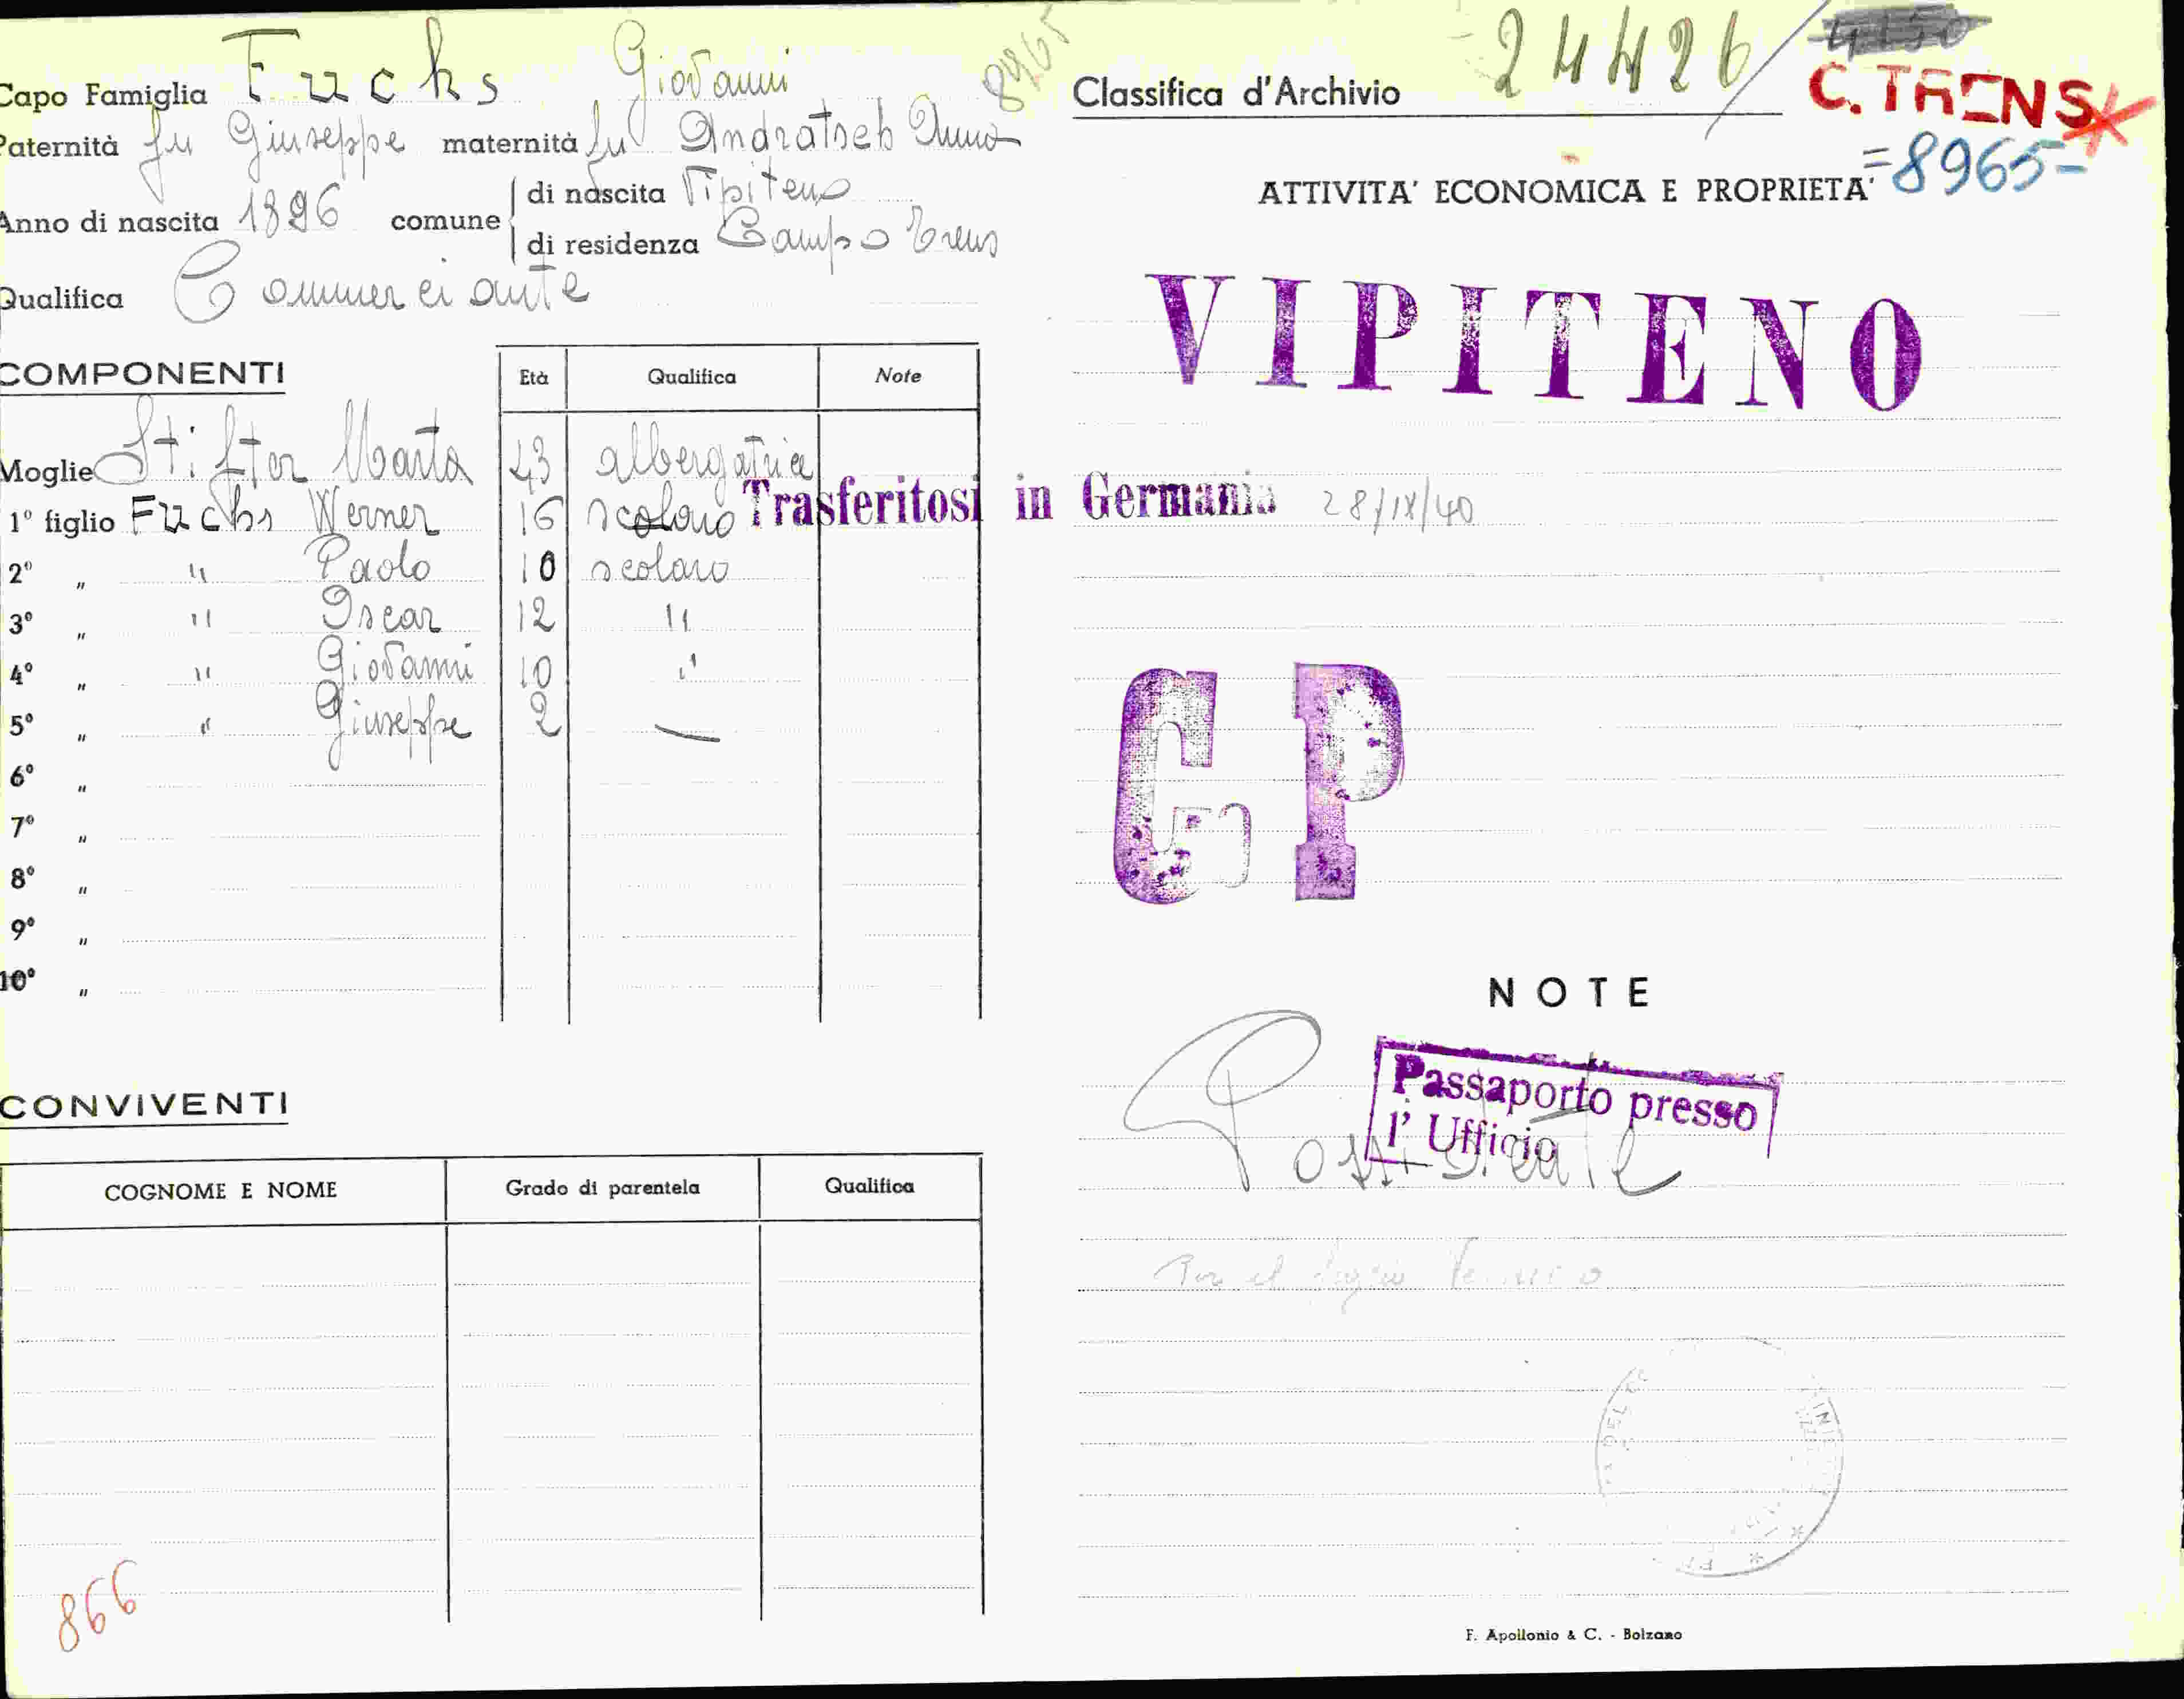 Capo Famiglia Fuchs Giovanni 8965
Paternità fu Giuseppe maternità fu Andratseb Anna
Anno di nascita 1896 comune di nascita Vipiteno
di residenza Campo Trens
Qualifica Commerciante
COMPONENTI Età Qualifica Note
Moglie Stifter Marta 43 albergatrice
1º figlio Fuchs Werner 16 scolaro
2º " " Paolo 10 scolaro
3º " " Oscar 12 "
4º " " Giovanni 10 "
5º " " Giuseppe 2 —
6º "
7º "
8º "
9º "
10º "
CONVIVENTI
COGNOME E NOME Grado di parentela Qualifica
866
Classifica d'Archivio 24426
C. TRENS
=8965-
ATTIVITA' ECONOMICA E PROPRIETA'
VIPITENO
Trasferitosi in Germania 28/IX/40
GP
NOTE
Passaporto presso
l' Ufficio
F. Apollonio & C. - Bolzano